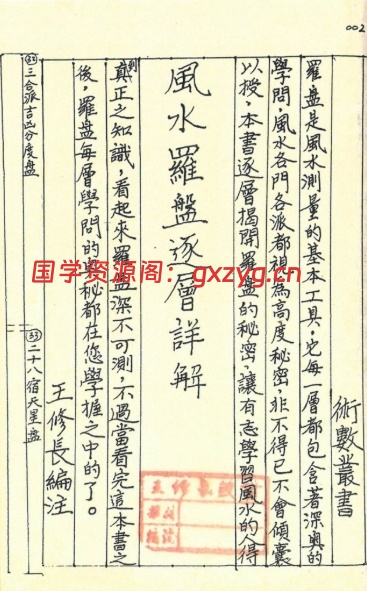 002
術數叢書
羅盤是風水測量的基本工具,它每一層都包含著深奥的
學問,風水各門各派都視為高度秘密,非不得已不會傾囊
以授,本書逐層揭開羅盤的秘密,讓有志學習風水的人得
風水羅盤逐層詳解
到真正之知識,看起來羅盤深不可測,不過當看完這本書之
後,羅盤每層學問的奥秘都在您學握之中的了。
王修長編注
㉜三合派吉凶分度盤
㉝二十八宿天星盤
国学资源阁:gxzyg.cn